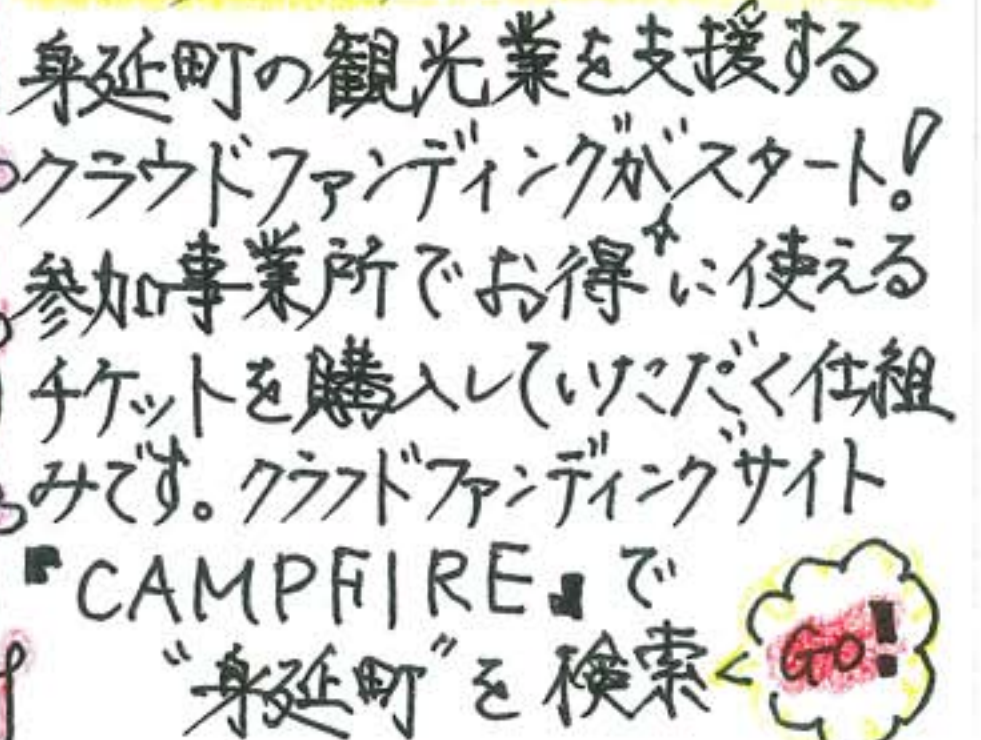 身延町の観光業を支援する
クラウドファンディングがスタート!
参加事業所でお得☆に使える
チケットを購入していただく仕組
みです。クラフドファンディングサイト
『CAMPFIRE』で
"身延町"を検索
GO!